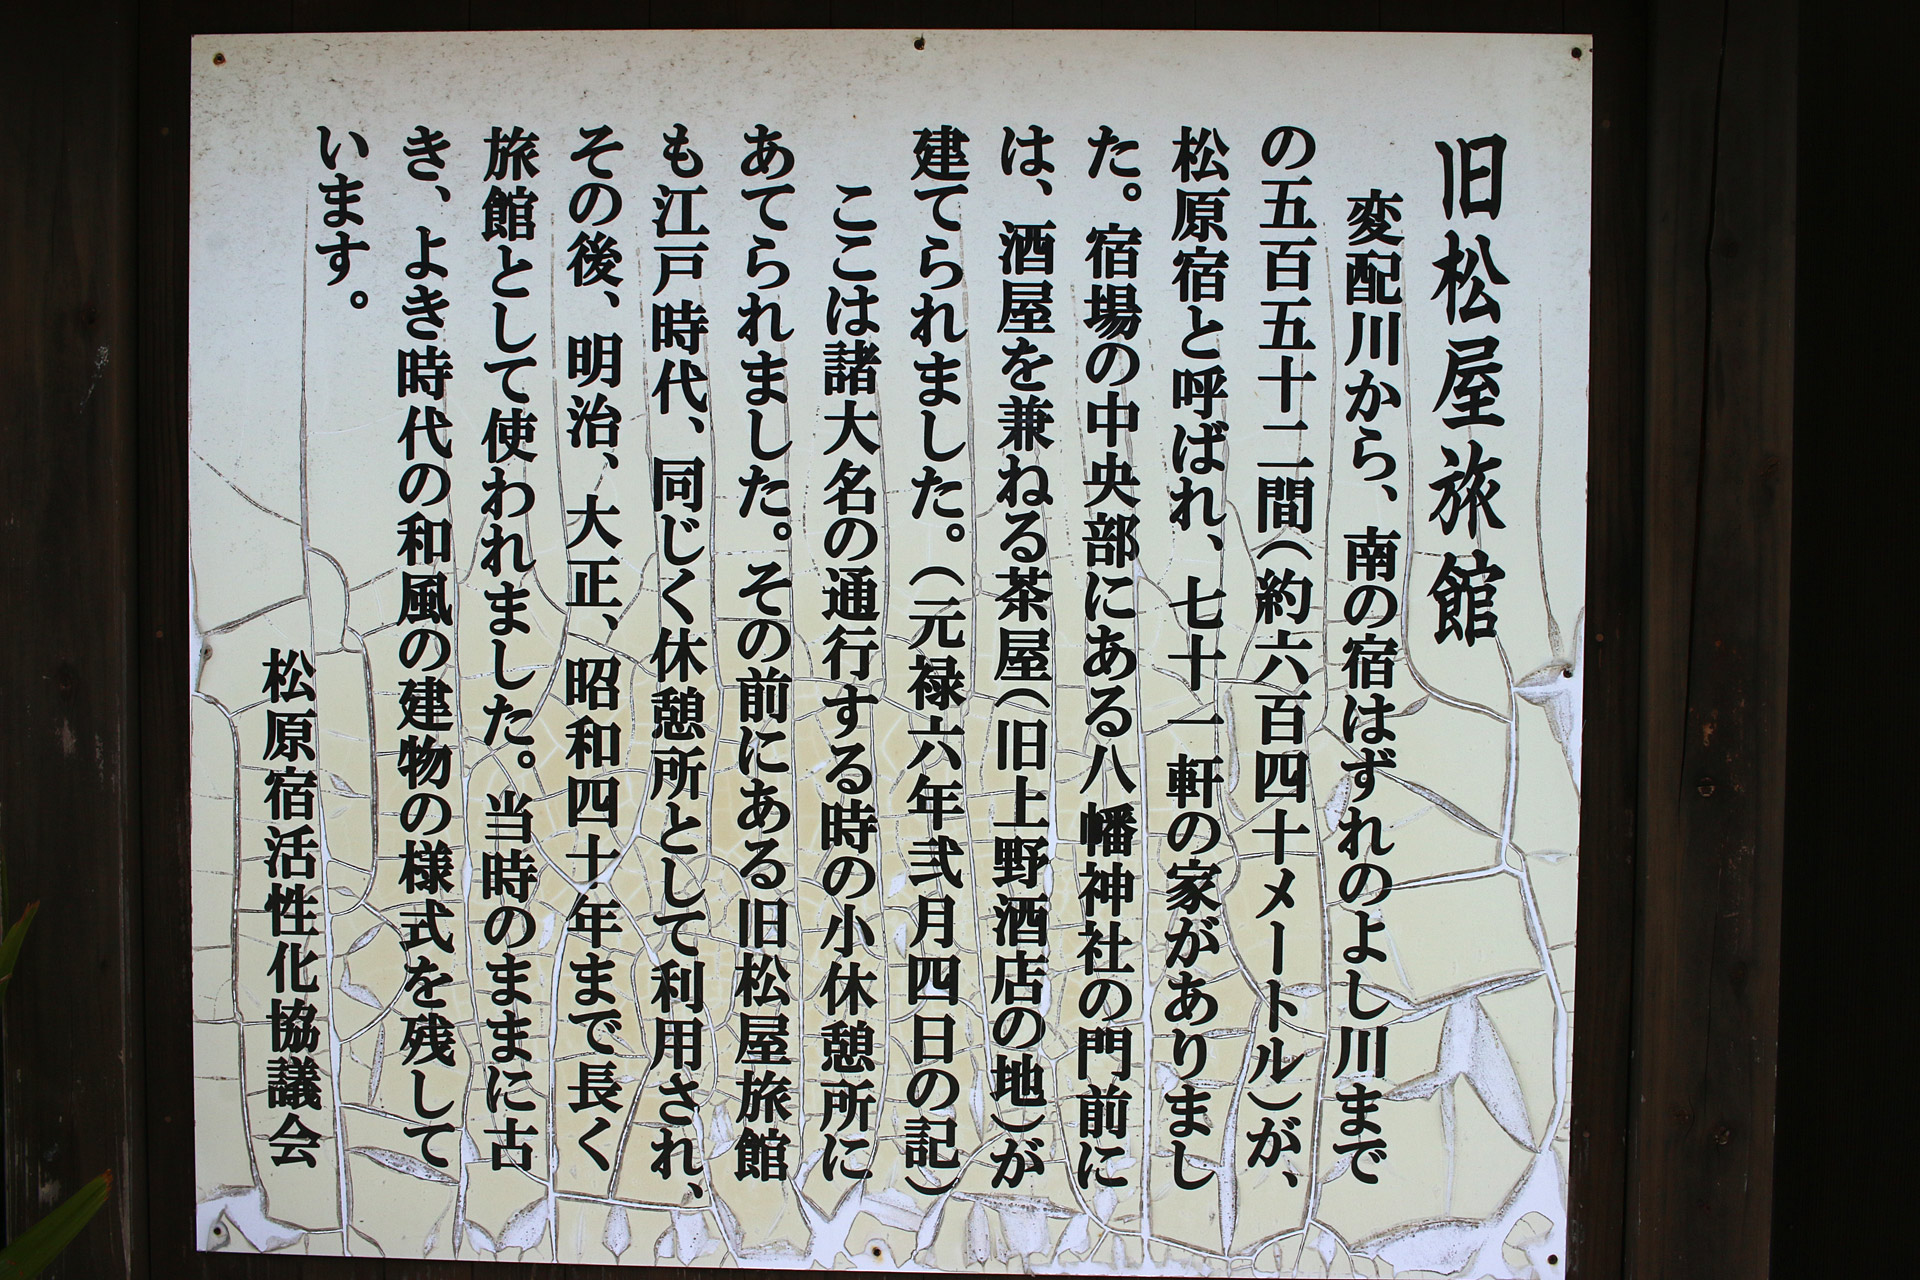 旧松屋旅館
変配川から、南の宿はずれのよし川まで
の五百五十二間(約六百四十メートル)が、
松原宿と呼ばれ、七十一軒の家がありまし
た。宿場の中央部にある八幡神社の門前に
は、酒屋を兼ねる茶屋(旧上野酒店の地)が
建てられました。(元禄六年弐月四日の記)
ここは諸大名の通行する時の小休憩所に
あてられました。その前にある旧松屋旅館
も江戸時代、同じく休憩所として利用され、
その後、明治、大正、昭和四十年まで長く
旅館として使われました。当時のままに古
き、よき時代の和風の建物の様式を残して
います。
松原宿活性化協議会